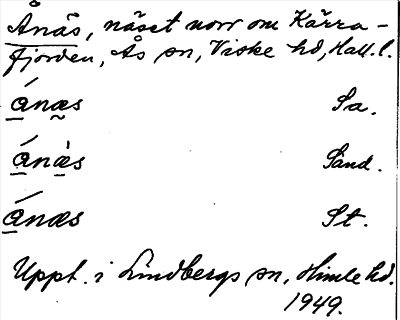 Ånäs, näset norr om Kärra-
fjorden, Ås sn, Viske hd, Hall. l.
ánæs Sa.
ánàs Sand.
ánæs St.
Uppt. i Lindbergs sn, Himle hd.
1949.